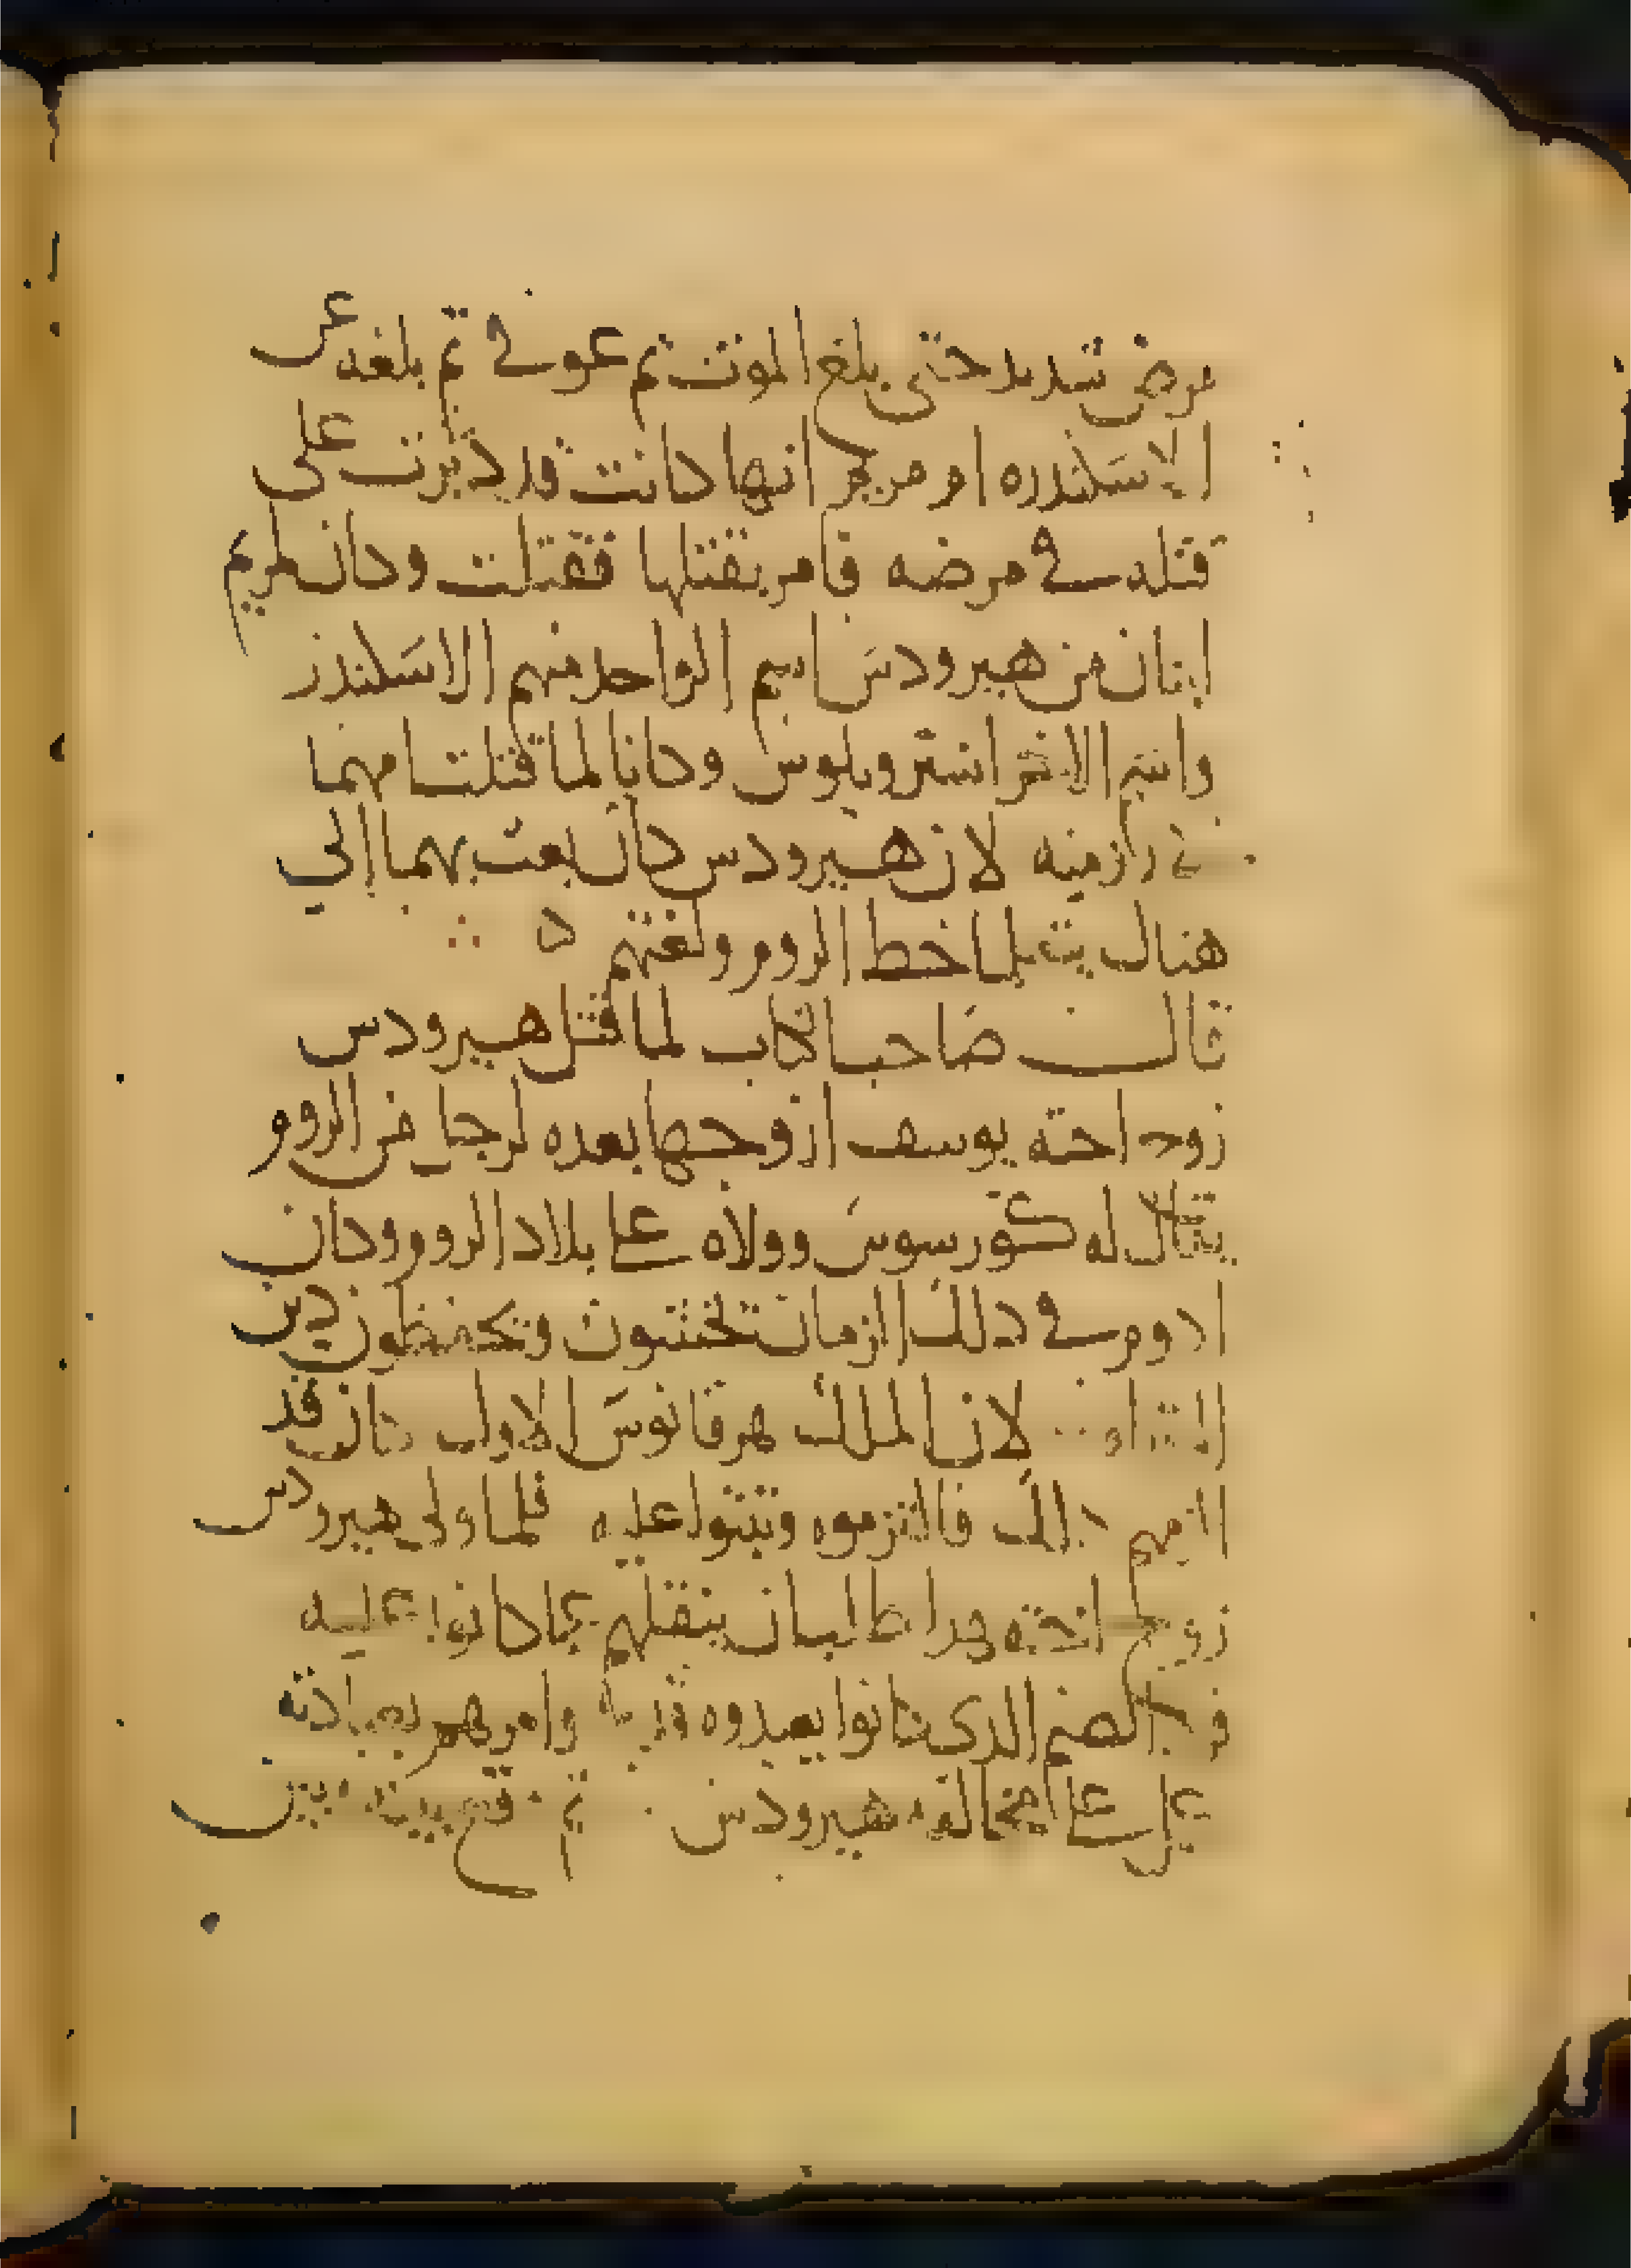 مرض شديد حتى بلغ الموت ثم عوفي ثم بلغه عن
الاسكندره ام مريم انها كانت قد دبرت على
قتله في مرضه فامر بقتلها فقتلت وكان لمريم
ابنان من هيرودس اسم الواحد منهم الاسكندر
واسم الاخر استروبلوس وكانا لما قتلت امهما
في رازميه لان هيرودس كان بعث بهما الي
هناك يتعلما خط الروم ولغتهم ه
قال صاحب الكتاب لما قتل هيرودس
زوج اخته يوسف ازوجها بعده لرجل من الروم
يقال له كورسوس وولاه على بلاد الروم وكان
ادوم في ذلك الزمان تختتنون وتحفظون دين
التوراه لان الملك هرقانوس الاول كان قد
الزمهم ذلك فالتزموه وثبتوا عليه فلما ولى هيرودس
زوج اخته طلب ان ينقلهم عما كانوا عليه
الصنم الذي كانوا يعبدوه وامرهم بعبادته
عمل على هيرودس ثم وقع بينه وبين